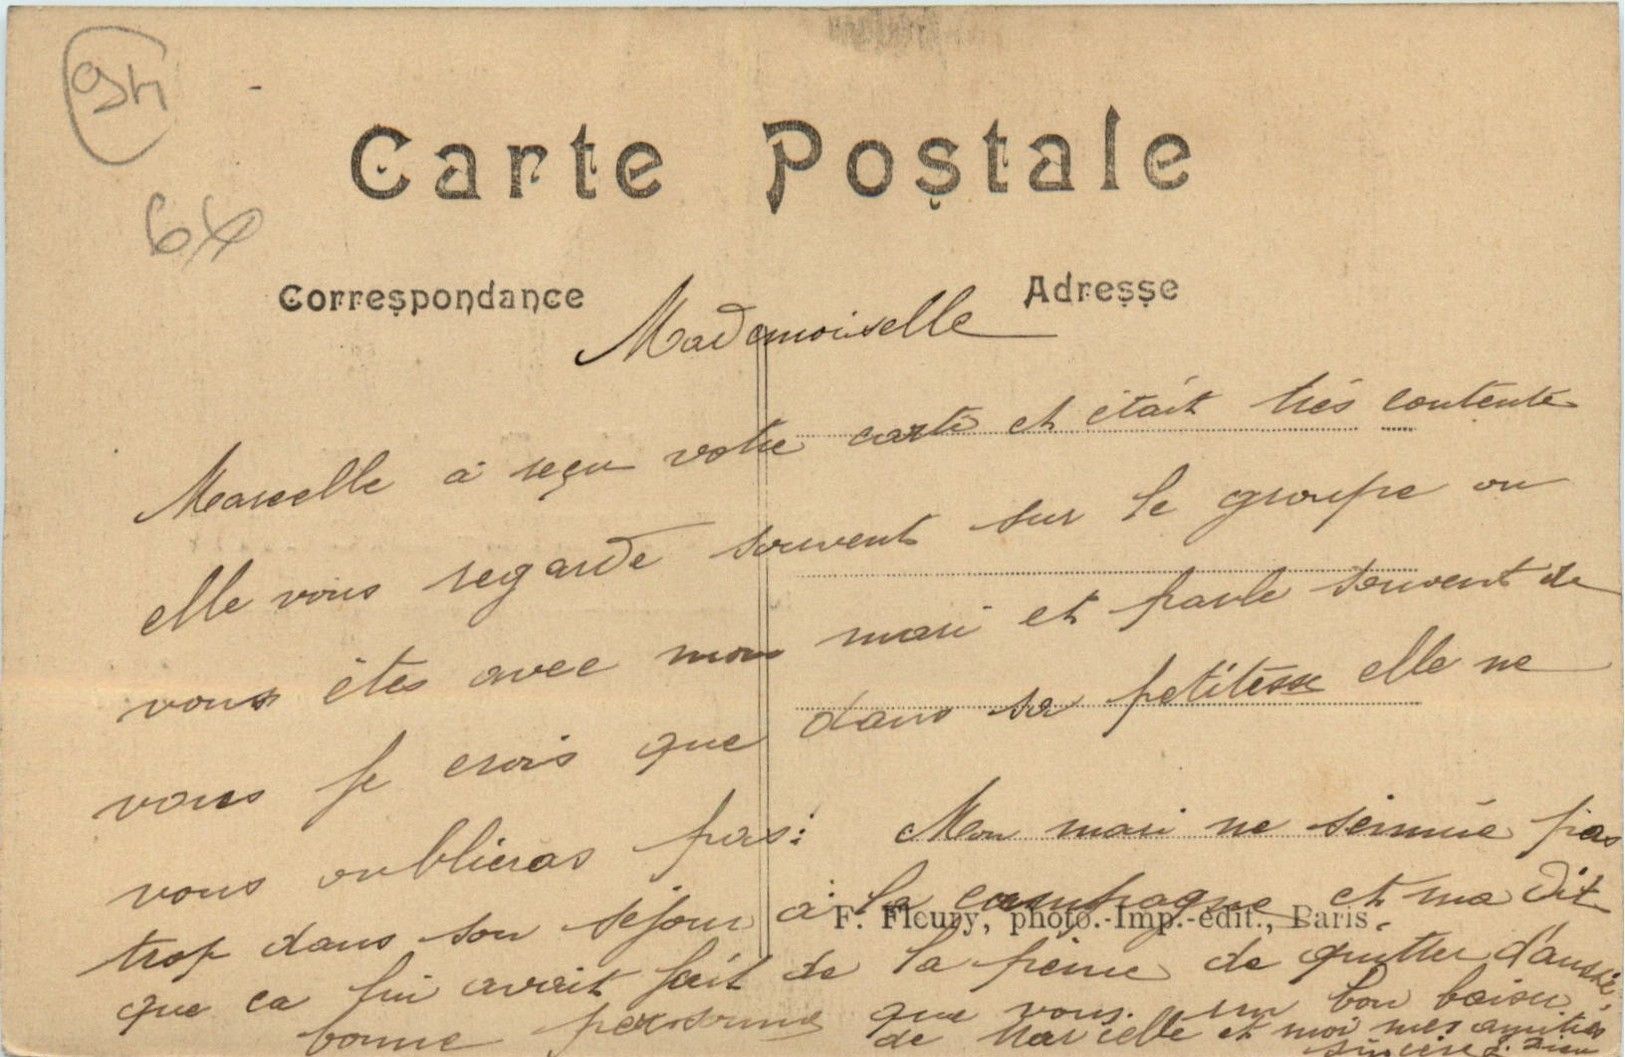 94
64
Carte Postale
Correspondance
Adresse
Mademoiselle
Marcelle à reçu votre carte et était très contente
elle vous regarde souvent sur le groupe ou
vous êtes avec mon mari et parle souvent de
vous je crois que dans sa petitesse elle ne
vous oublieras pas: Mon mari ne s'ennuie pas
trop dans son séjour à la campagne et ma dit
que ca lui avait fait de la peine de quitter d'aussi
bonne personne que vous. un bon baiser
de Marcelle et moi mes amitiés
sincère
F. Fleury, photo.-Imp.-édit., Paris